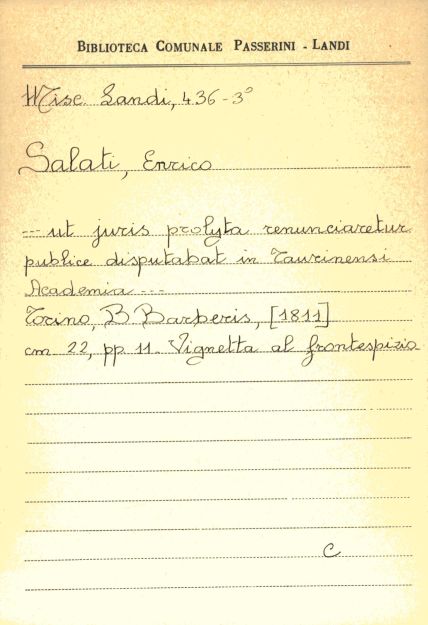 BIBLIOTECA COMUNALE PASSERINI - LANDI
Misc. Landi, 436-3°
Salati, Enrico
--- ut juris prolyta renunciaretur
publice disputabat in Taurinensi
Academia ---
Torino, B Barberis, [1811]
cm 22, pp 11. Vignetta al frontespizio
C